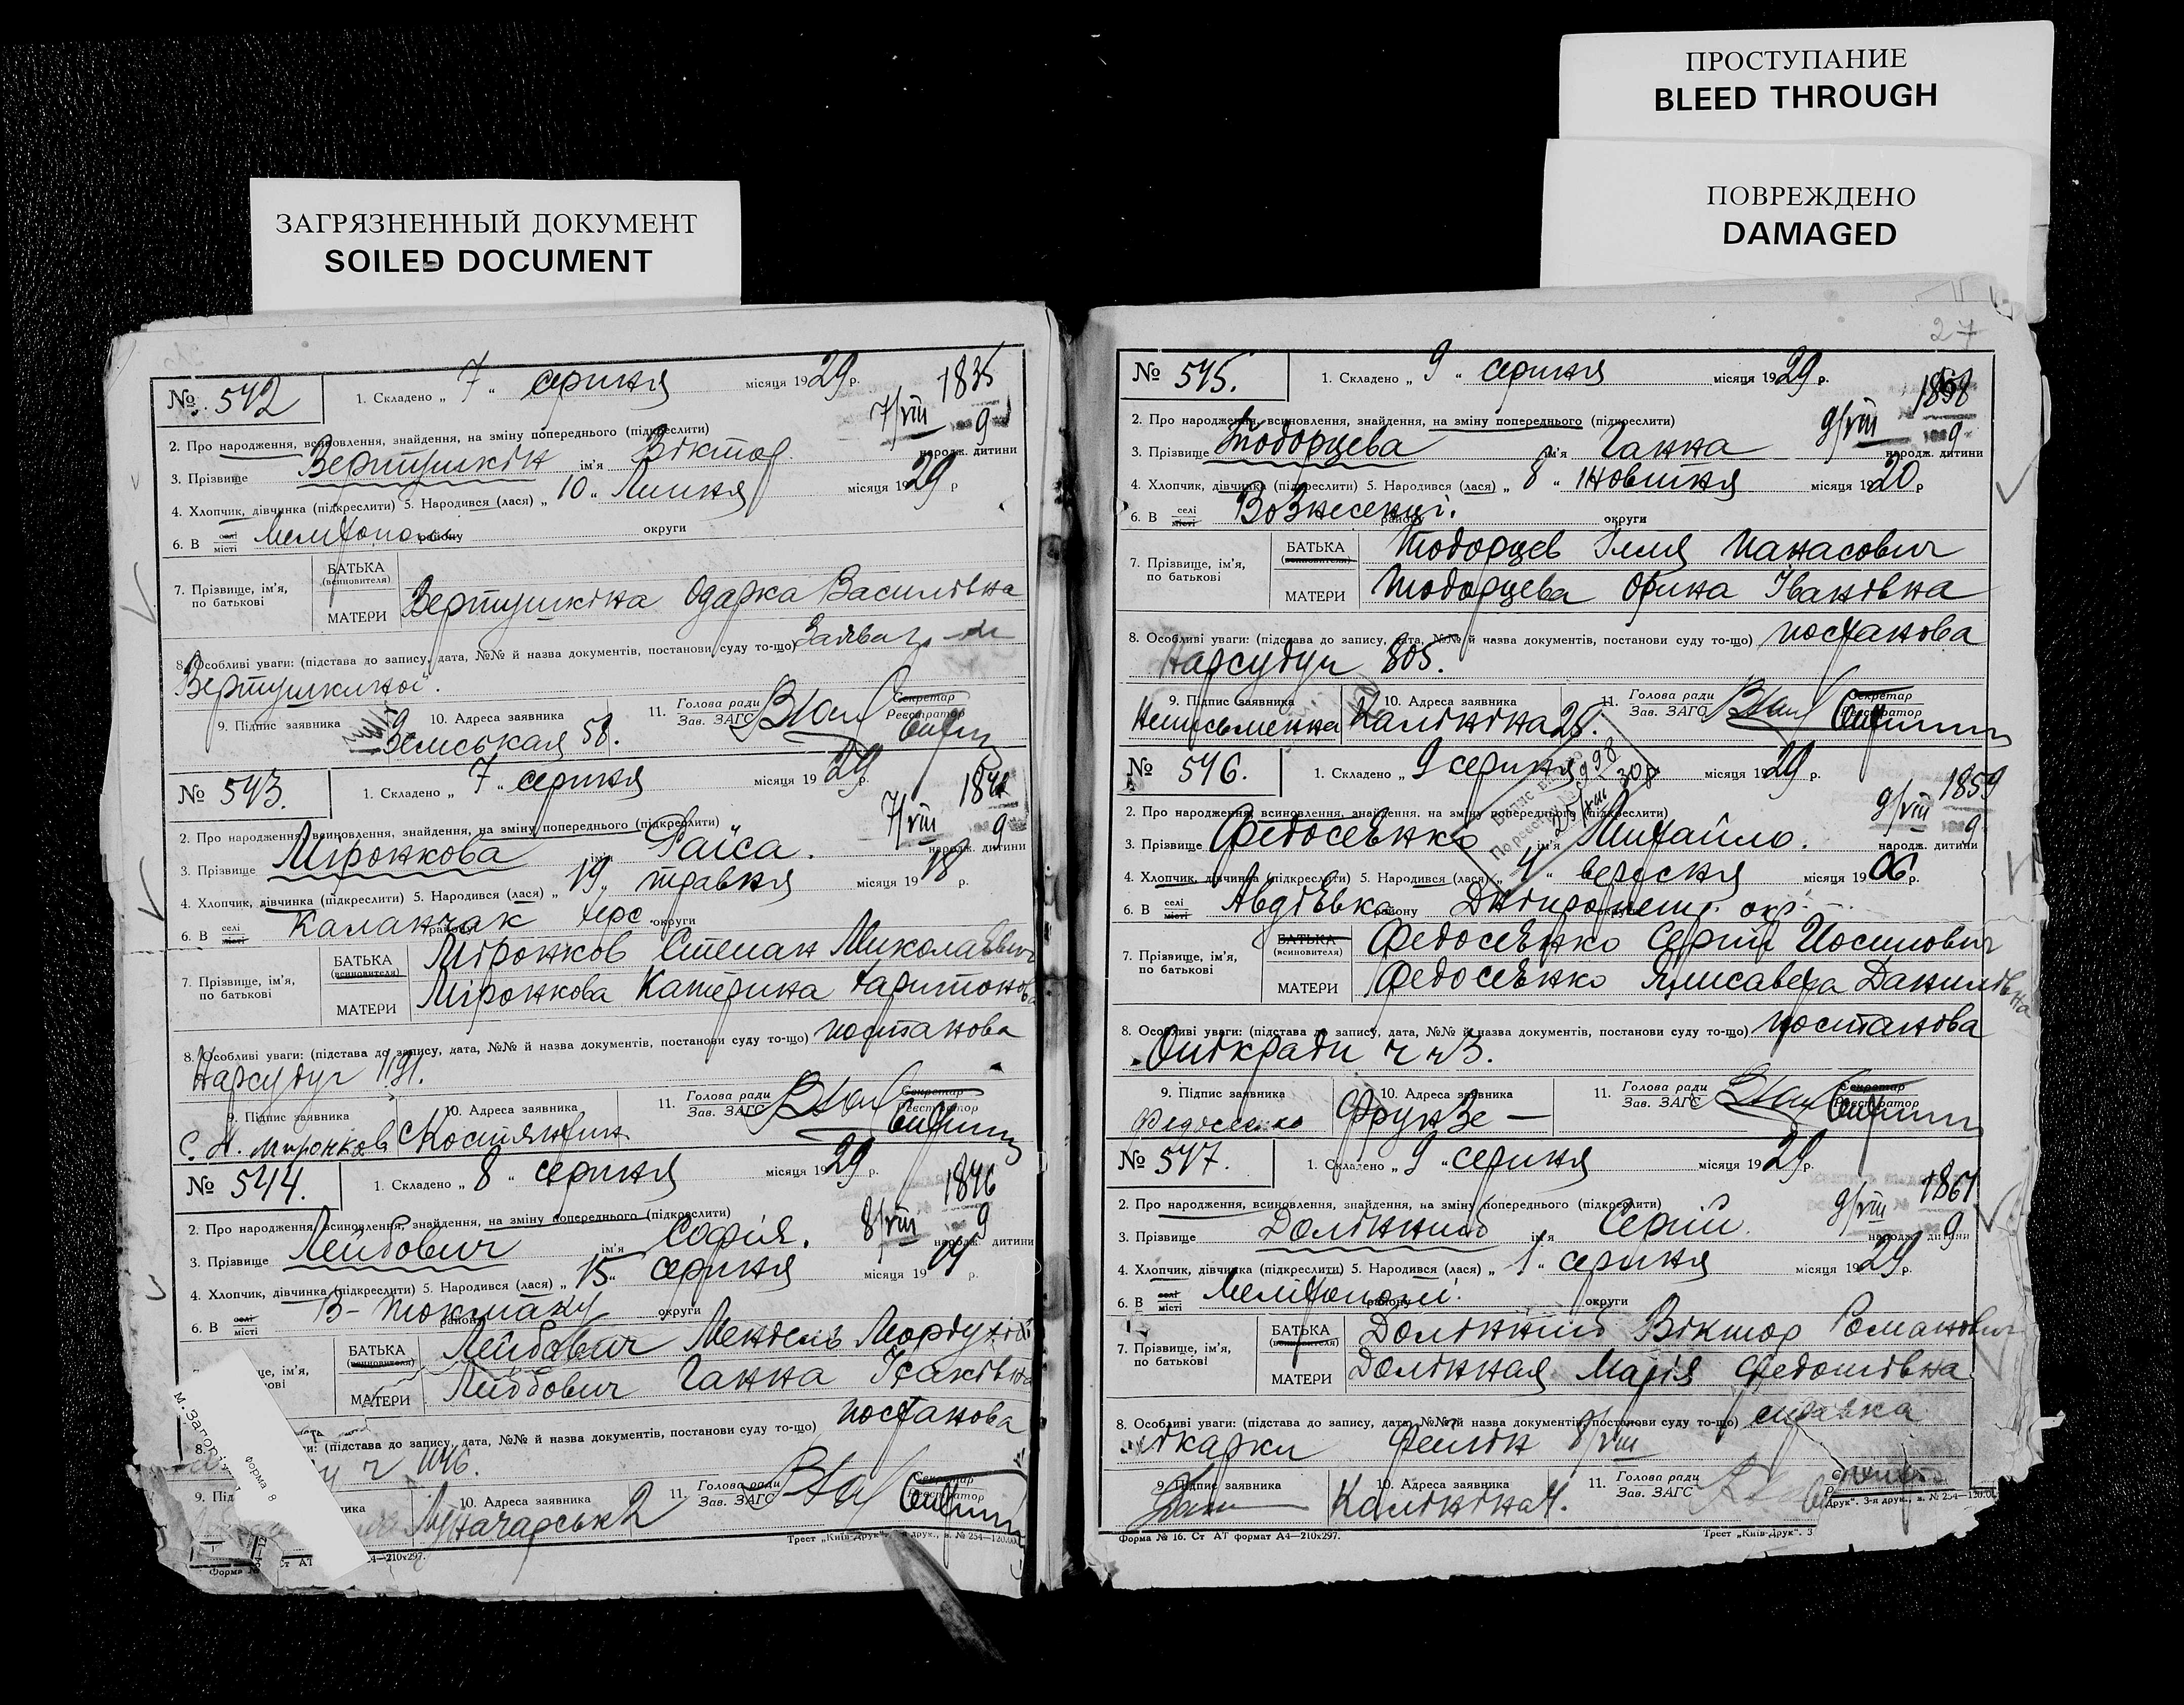 ЗАГРЯЗНЕННЫЙ ДОКУМЕНТ
SOILED DOCUMENT
ПРОСТУПАНИЕ
BLEED THROUGH
ПОВРЕЖДЕНО
DAMAGED
№ 542 1. Складено „ 7 “ серпня місяця 1929 р.
1835
7/VIII 9
2. Про народження, всиновлення, знайдення, на зміну попереднього (підкреслити)
народж. дитини
3. Прізвище Вертушкін ім'я Віктор
4. Хлопчик, дівчинка (підкреслити) 5. Народився (лася) „ 10 “ Липня місяця 1929 р
6. В селі місті Мелітополі району округи
7. Прізвище, ім'я, по батькові
БАТЬКА (всиновителя)
МАТЕРИ Вертушкіна Одарка Василівна
8. Особливі уваги: (підстава до запису, дата, №№ й назва документів, постанови суду то-що) Заява гр-ки
Вертушкиної.
9. Підпис заявника 10. Адреса заявника 11. Голова ради Зав. ЗАГС Секретар Реєстратор
Земськая 58.
№ 543. 1. Складено „ 7 “ серпня місяця 1929 р.
7/VIII 9
2. Про народження, всиновлення, знайдення, на зміну попереднього (підкреслити)
народж. дитини
3. Прізвище Міронкова ім'я Раїса.
4. Хлопчик, дівчинка (підкреслити) 5. Народився (лася) „ 19 “ травня місяця 1918 р.
6. В селі місті Каланчак району Херс. округи
7. Прізвище, ім'я, по батькові
БАТЬКА (всиновителя) Міронков Степан Миколаєвич
МАТЕРИ Міронкова Катерина Харитоновна
8. Особливі уваги: (підстава до запису, дата, №№ й назва документів, постанови суду то-що) постанова
Нарсудуч 1191.
9. Підпис заявника 10. Адреса заявника 11. Голова ради Зав. ЗАГС Секретар Реєстратор
С. Н. Миронков
№ 544. 1. Складено „ 8 “ серпня місяця 1929 р.
1846
8/VIII 9
2. Про народження, всиновлення, знайдення, на зміну попереднього (підкреслити)
народж. дитини
3. Прізвище Лейбович ім'я Софія.
4. Хлопчик, дівчинка (підкреслити) 5. Народився (лася) „ 15 “ серпня місяця 19 р.
6. В селі місті В-Токмаку району округи
БАТЬКА (всиновителя) Лейбович Мендель Мордухів
МАТЕРИ Лейбович Ганна Ісаківна
(підстава до запису, дата, №№ й назва документів, постанови суду то-що) постанова
ч 1046.
9. Підпис заявника 10. Адреса заявника 11. Голова ради Зав. ЗАГС Секретар Реєстратор
Луначарськ 2
м. Запоріж
форма 8
Трест „Київ-Друк“. 3-я друк., з. № 254—120.000
27
№ 545. 1. Складено „ 9 “ серпня місяця 1929 р.
1858
9/VIII 9
2. Про народження, всиновлення, знайдення, на зміну попереднього (підкреслити)
народж. дитини
3. Прізвище Тодорцева ім'я Ганна
4. Хлопчик, дівчинка (підкреслити) 5. Народився (лася) „ 8 “ Жовтня місяця 1920 р
6. В селі місті Вознесенці. району округи
7. Прізвище, ім'я, по батькові
БАТЬКА (всиновителя) Тодорцев Ілля Панасович
МАТЕРИ Тодорцева Орина Іванівна
8. Особливі уваги: (підстава до запису, дата, №№ й назва документів, постанови суду то-що) постанова
Нарсудуч 805.
9. Підпис заявника 10. Адреса заявника 11. Голова ради Зав. ЗАГС Секретар Реєстратор
Неписьменна Калініна 25.
№ 546. 1. Складено „ 9 серпня місяця 1929 р.
1859
9/VIII 9
2. Про народження, всиновлення, знайдення, на зміну попереднього (підкреслити)
народж. дитини
3. Прізвище Федосєєнко ім'я Михайло.
4. Хлопчик, дівчинка (підкреслити) 5. Народився (лася) „ 4 “ вересня місяця 1906 р.
6. В селі місті Авдієвка району Дніпропет. окр. округи
7. Прізвище, ім'я, по батькові
БАТЬКА (всиновителя) Федосєєнко Сергій Йосипович
МАТЕРИ Федосєєнко Єлисавета Данилівна
8. Особливі уваги: (підстава до запису, дата, №№ й назва документів, постанови суду то-що) постанова
9. Підпис заявника 10. Адреса заявника 11. Голова ради Зав. ЗАГС Секретар Реєстратор
Федосеенко Фрунзе —
№ 547. 1. Складено „ 9 “ серпня місяця 1929 р.
1861
9/VIII 9
2. Про народження, всиновлення, знайдення, на зміну попереднього (підкреслити)
народж. дитини
3. Прізвище Долінний ім'я Сергій.
4. Хлопчик, дівчинка (підкреслити) 5. Народився (лася) „ 1 “ серпня місяця 1929 р.
6. В селі місті Мелітополі. району округи
7. Прізвище, ім'я, по батькові
БАТЬКА (всиновителя) Долінний Віктор Романович
МАТЕРИ Долінная Марія Федотівна
8. Особливі уваги: (підстава до запису, дата, №№ й назва документів, постанови суду то-що) справка
8/VIII
9. Підпис заявника 10. Адреса заявника 11. Голова ради Зав. ЗАГС
Калініна 4.
Форма № 16. Ст АТ формат А4—210х297.
Трест „Київ-Друк“. 3
Друк“. 3-я друк., з. № 254—120.00